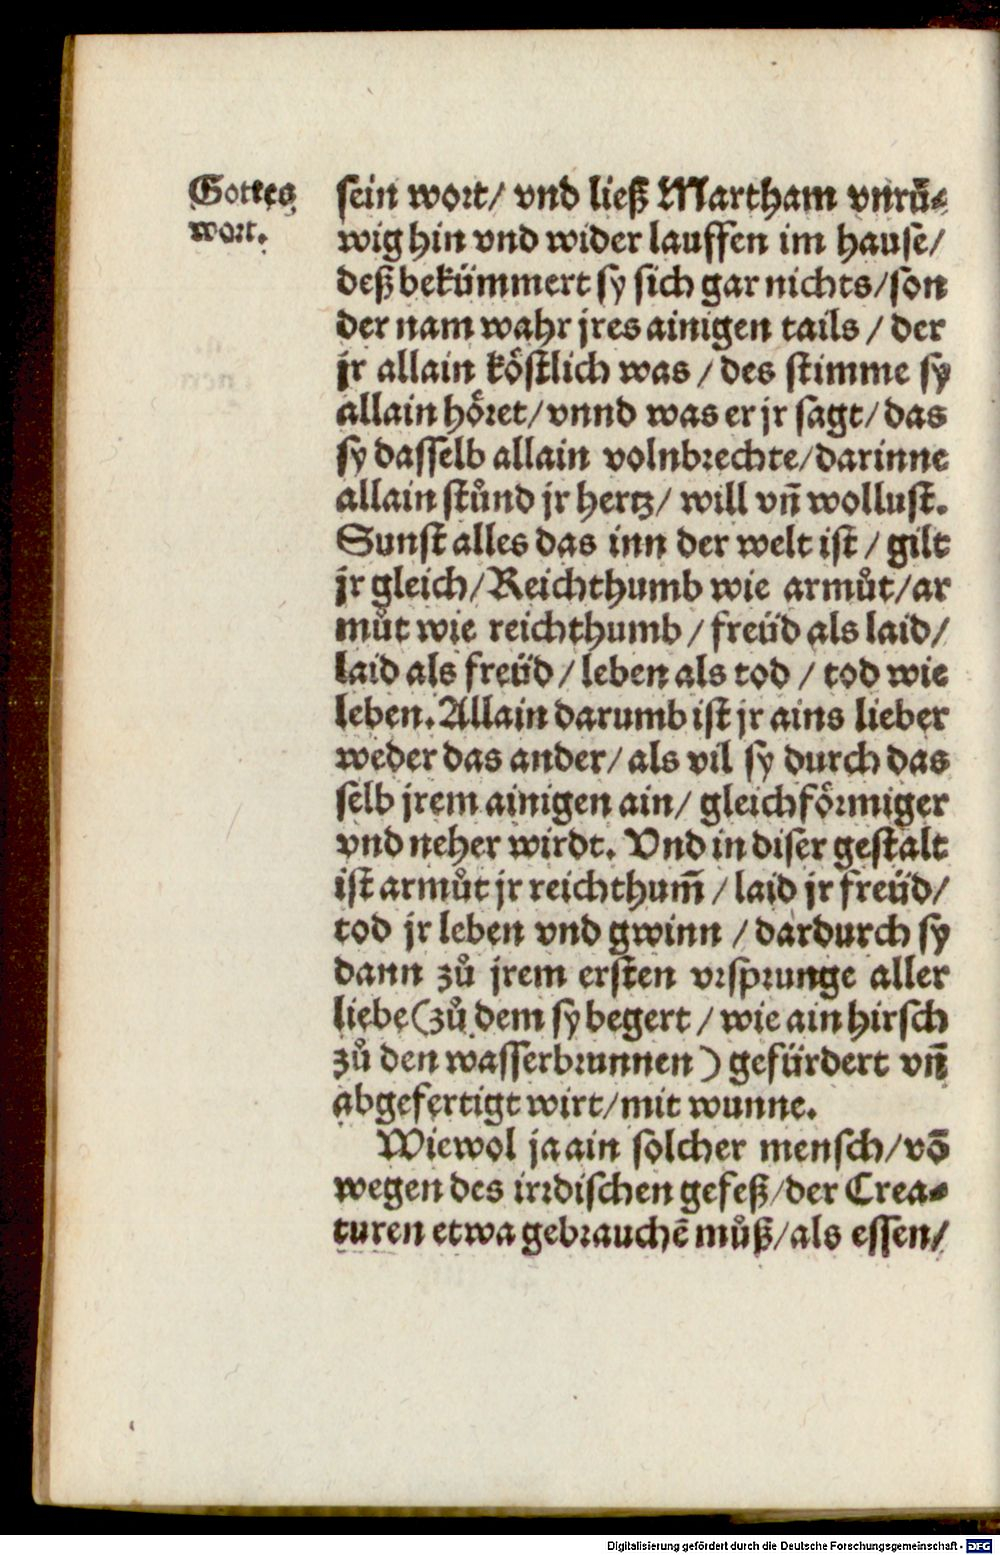 Gottes
wort.
sein wort/ vnd ließ Martham vnrů⸗
wig hin vnd wider lauffen im hause/
deß bekümmert sy sich gar nichts/son
der nam wahr jres ainigen tails / der
jr allain köstlich was / des stimme sy
allain höret/ vnnd was er jr sagt/ das
sy dasselb allain volnbrechte/darinne
allain stůnd jr hertz/ will vn̄ wollust.
Sunst alles das inn der welt ist / gilt
jr gleich/Reichthumb wie armůt/ar
můt wie reichthumb / freüd als laid/
laid als freüd / leben als tod / tod wie
leben. Allain darumb ist jr ains lieber
weder das ander/ als vil sy durch das
selb jrem ainigen ain/ gleichförmiger
vnd neher wirdt. Vnd in diser gestalt
ist armůt jr reichthum̄ / laid jr freüd/
tod jr leben vnd gwinn / dardurch sy
dann zů jrem ersten vrsprunge aller
liebe (zů dem sy begert / wie ain hirsch
zů den wasserbrunnen ) gefürdert vn̄
abgefertigt wirt/mit wunne.
Wiewol ja ain solcher mensch/vō
wegen des irrdischen gefeß/der Crea⸗
turen etwa gebrauchē můß/als essen/
Digitalisierung gefördert durch die Deutsche Forschungsgemeinschaft - DFG